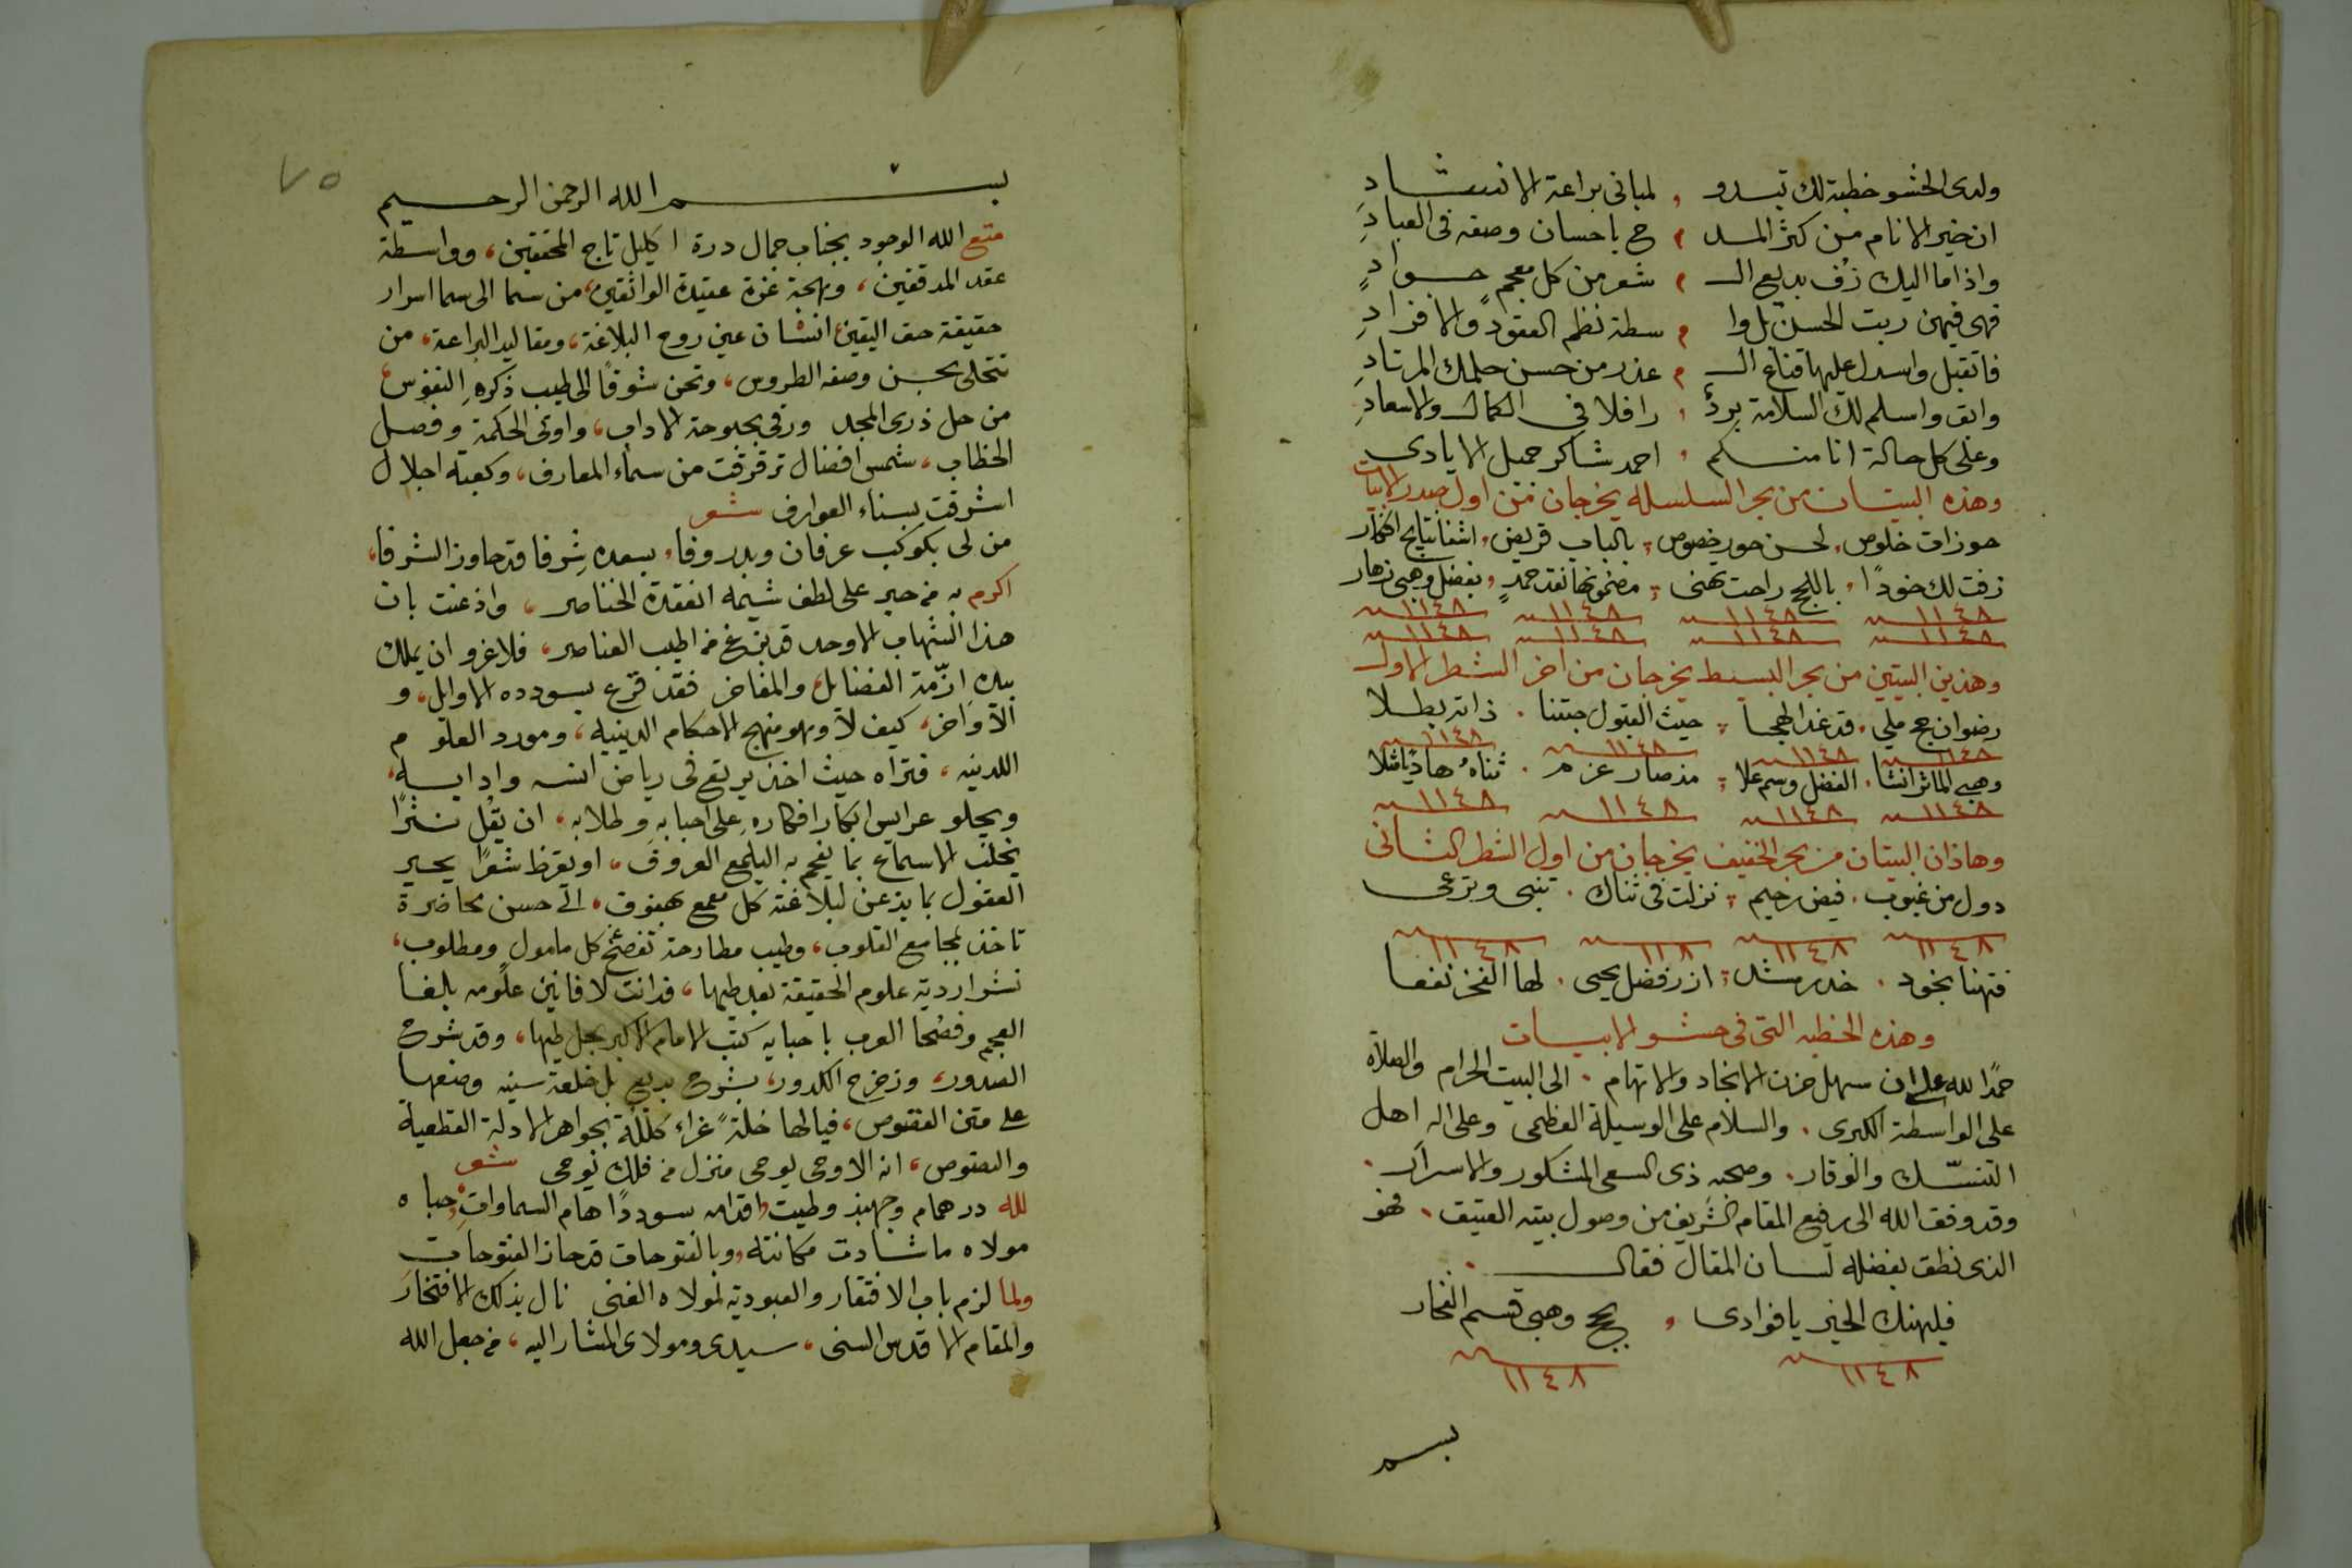 ولدى الحشو خطبة لك تبدو ، لمبانى براعة الانشاد
ان خير الانام من كثر المد ، ح باحسان وصفه فى العباد
واذا ما اليك زف بديع الـ ، شعر من كل معجم جواد
فهى فيهن ربت الحسن بل وا ، سطة نظم العقود والافراد
فاتقبل واسدل عليها قناع الـ ، عذر من حسن حلمك المرتاد
وابق واسلم لك السلامة برد ، رافلا فى الكمال والاسعاد
وعلى كل حالة انا منكم ، احمد شاكر جميل الايادى
وهذه البيتان من بحر السلسله يخرجان من اول صدر الابيات
حوزات خلوص ، لحسن حور خصوص ، بالباب قريض ، انشا نتايج افكار
زفت لك خودًا ، باللج راحت تهنى ، مضمونها نقد حمد ، بفضل وهبى زهار
١١٤٨ ١١٤٨ ١١٤٨ ١١٤٨
١١٤٨ ١١٤٨ ١١٤٨ ١١٤٨
وهذين البيتين من بحر البسيط يخرجان من اخر الشطر الاول
رضوان حج ملي . قد غدا لهجا ، حيث القبول جتنا . ذاته بطلا
١١٤٨ ١١٤٨ ١١٤٨ ١١٤٨
وهبى الماثر انشا . الفضل وسم علا ، مذ صار عزم . ثناه هاديا مثلا
١١٤٨ ١١٤٨ ١١٤٨ ١١٤٨
وهاذان البيتان من بحر الخفيف يخرجان من اول الشطر الثانى
دول من غيوب . فيض رحيم ، نزلت فى ثناك . تنبى وترعى
١١٤٨ ١١٤٨ ١١٨ ١١٤٨
فتهنا بخود . خدر رشد ، ازر فضل يحيى . لها الفخر نفعا
وهذه الخطبه التى فى حشو الابيات
حمدًا لله على ان سهل حزن الانجاد والاتهام . الى البيت الحرام والصلاة
على الواسطة الكبرى . والسلام على الوسيلة العظمى وعلى اله اهل
التنسّك والوقار . وصحبه ذى السعى المشكور والاسرار .
وقد وفق الله الى رفيع المقام الشريف من وصول بيته العتيق . فهو
الذى نطق بفضله لسان المقال فقال
فليهنك الخير يا فوادى ، بحج وهبى قسم الفخار
١١٤٨ ١١٤٨
بسم
٧٥
بسم الله الرحمن الرحيم
متع الله الوجود بجناب جمال درة اكليل تاج المحققين ، وواسطة
عقد المدققين ، وبهجة غرة عقيدة الواثقين ، من سما الى سما اسرار
حقيقة حق اليقين ، انسان عين روح البلاغة ، ومقاليد البراعة ، من
تتحلى بحسن وصفه الطروس ، وتحن شوقًا الى طيب ذكره النفوس ،
من حل ذرى المجد ورقى بحبوحة الاداب ، واوتى الحكمة وفصل
الخطاب ، شمس افضال ترقرقت من سماء المعارف ، وكعبة اجلال
اشرقت بسناء العوارف شعر
من لى بكوكب عرفان وبدر وفا ، بسعده شرفا قد جاوز الشرفا ،
اكرم به من حبر على لطف شيمه انعقدة الخناصر ، واذعنت بان
هذا الشهاب الاوحد قد بزغ من اطيب العناصر ، فلا غرو ان يملك
بيده ازّمة الفضايل ، والمفاخر فقد قرع بسودده الاوايل ، و
الاواخر ، كيف لا وهو منهج الاحكام الدينيه ، ومورد العلوم
اللدنيه ، فتراه حيث اخذ يرتع فى رياض انسه وادابه ،
ويجلو عرايس ابكار افكاره على احبابه وطلابه . ان يقل نثرًا
يخلب الاسماع بما يفحم به البليغ العروف ، او يقرظ شعرًا يحير
العقول بما يذعن لبلاغته كل معمع هبنوف ، الى حسن محاضرة
تاخذ بمجامع القلوب ، وطيب مطارحة تفصح كل مامول ومطلوب ،
نشوارديه علوم الحقيقة بعد طيها ، فدانت لافانين علومه بلغا
العجم وفصحا العرب باحبايه كتب الامام الاكبر بجل طيها ، وقد شرح
الصدور ، وزحزح الكدور ، بشرح بديع بل خلعة سنيه وضعها
على متن الفصوص ، فيالها خلة غراء كللة بجواهر الادلة القطعية
والنصوص ، انه الا وحى يوحى منزل من فلك نوحى شعر
لله در همام وجهبذ وطيت ، اقدامه سوددًا هام السماوات ، حباه
مولاه ما شادت مكانته ، وبالفتوحات قد حاز الفتوحات
ولما لزم باب الافتقار والعبودية لمولاه الغنى نال بذلك الافتخار
والمقام الاقدس السنى ، سيدى ومولاى المشار اليه ، من جعل الله